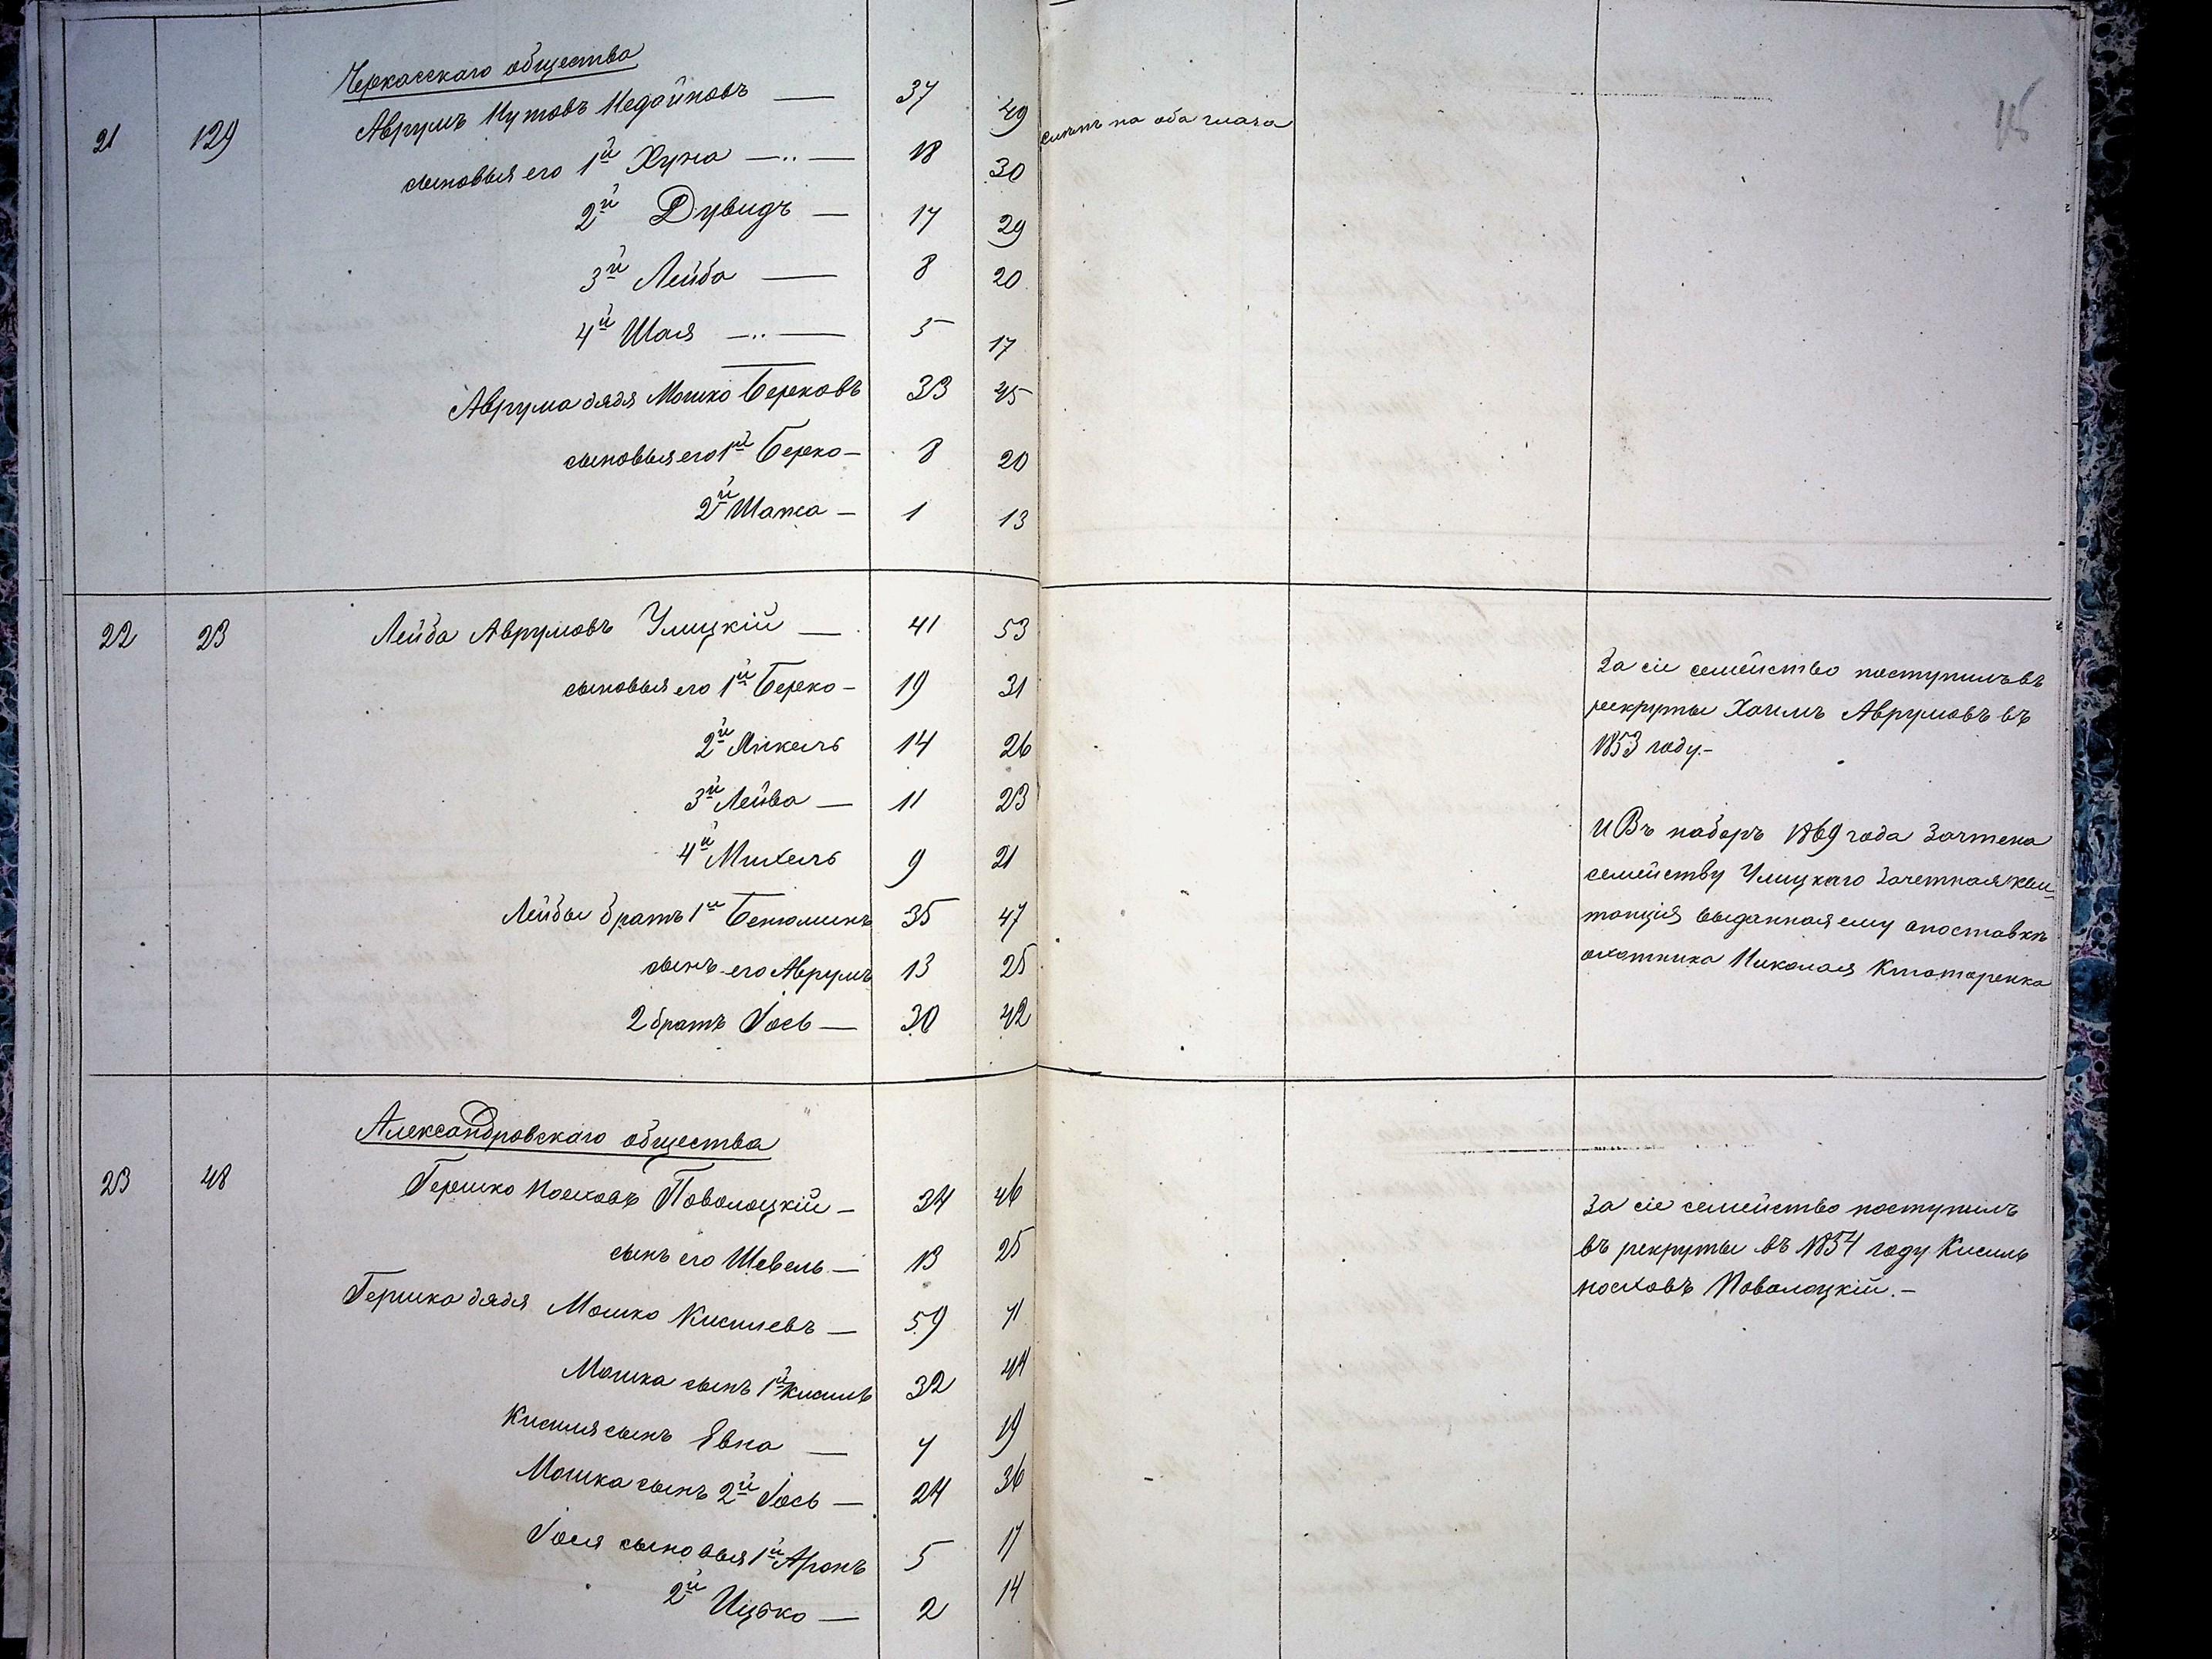 15
Черкасскаго общества
21 129 Аврумъ Нутовъ Недайновъ — 37 49 слѣпъ на оба глаза
сыновья его 1й Хуна — 18 30
2й Дувидъ — 17 29
3й Лейба — 8 20
4й Шая — 5 17
Аврума дядя Мошко Берковъ 33 45
сыновья его 1й Берко — 8 20
2й Шапса — 1 13
22 23 Лейба Аврумовъ Улицкій — 41 53
сыновья его 1й Берко — 19 31
2й Янкель 14 26
3й Лейва — 11 23
4й Михель 9 21
Лейбы братъ 1й Бенюминъ 35 47
сынъ его Аврумъ 13 25
2 братъ Іось — 30 42
За сіе семейство поступилъ въ
рекруты Хаимъ Аврумовъ въ
1853 году.-
И Въ наборъ 1869 года Зачтена
семейству Улицкаго Зачетная кви-
танція выданная ему о поставкѣ
охотника Николая
Александровскаго общества
23 48 Гершко Іосховъ Поволоцкій — 34 46
сынъ его Шевель — 13 25
Гершка дядя Мошко Кисилевъ — 59 71
Мошка сынъ 1й Кисиль 32 44
Кисиля сынъ Явна — 7 19
Мошка сынъ 2й Іось — 24 36
Іося сыновья 1й Аронъ 5 17
2й Ицько — 2 14
За сіе семейство поступилъ
въ рекруты въ 1854 году Кисиль
Іосховъ Поволоцкій.-